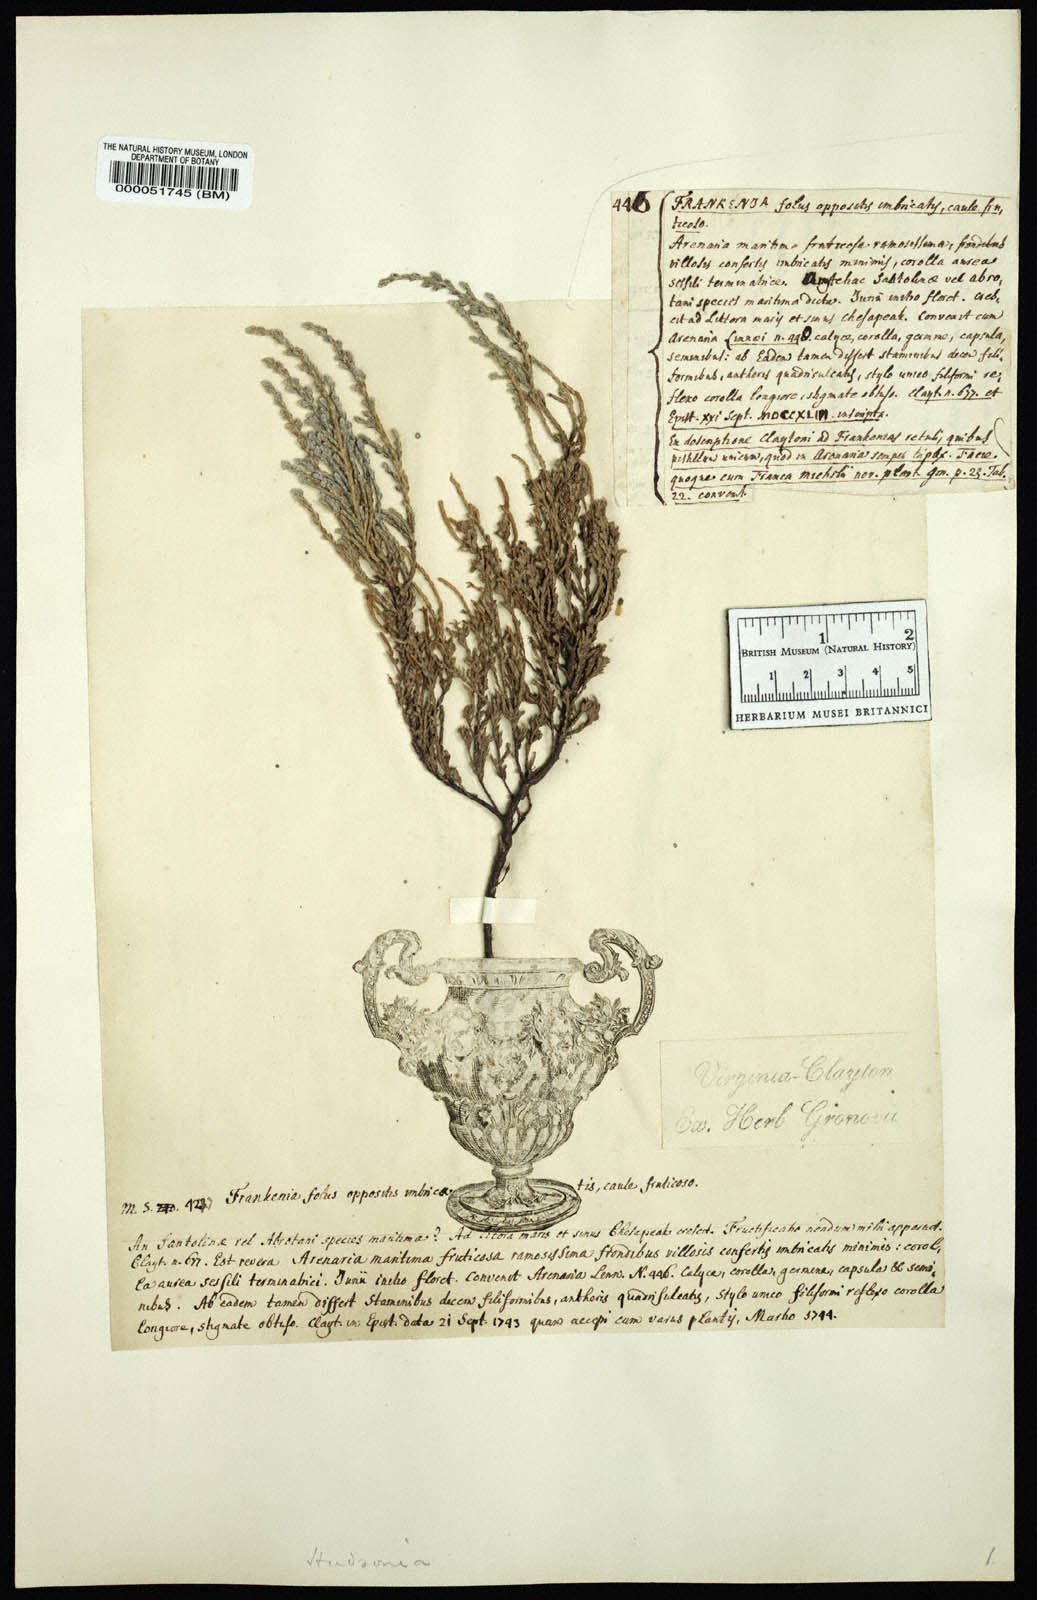 THE NATURAL HISTORY MUSEUM, LONDON
DEPARTMENT OF BOTANY
000051745 (BM)
446 FRANKENIA foliis oppositis imbricatis, caule fru,
ticoso.
Arenaria maritima fruticosa ramosissima, frondibus
villosis confertis imbricatis minimis, corolla aurea
sessili terminatrice. Santolinæ vel abro,
tani species maritima dicta. Junii initio floret. Cres,
cit ad Littora maris et sinus Chesapeak. Convenit cum
Arenaria Linnæi n. calyce, corolla, germine, capsula,
seminibus: ab Eadem tamen differt staminibus decem fili,
formibus, antheris quadrisulcatis, stylo unico filiformi re,
flexo corolla longiore, stigmate obtuso. Clayt. n. 677. et
Epist. XXI Sept. MDCCXLIII inscripta.
Ex descriptione Claytoni ad Frankenias retuli, quibus
pistillum unicum, quod in Arenaria semper triplex. Facie
quoque cum Franca Michelii nov. plant. gen. p. 23. Tab.
22. convenit.
1 2
BRITISH MUSEUM (NATURAL HISTORY)
1 2 3 4 5
HERBARIUM MUSEI BRITANNICI
Virginia-Clayton
Ex. Herb Gronovii
M. S. Frankenia foliis oppositis imbrica, tis, caule fruticoso.
An Santolinæ vel Abrotani species maritima? Ad littora maris et sinus Chesapeak crescit. Fructificatio nondum mihi apparuit.
Clayt. n. 677. Est revera Arenaria maritima fruticosa ramosissima frondibus villosis confertis imbricatis minimis: corol,
la aurea sessili terminatrici. Junii initio floret. Convenit Arenaria Linn. N. 446. Calyce, corolla, germine, capsula & semi,
nibus. Ab eadem tamen differt Staminibus decem filiformibus, antheris quadrisulcatis, Stylo unico filiformi reflexo corolla
longiore, stigmate obtuso. Clayt. in Epist. data 21 Sept. 1743 quam accepi cum variis plantis, Martio 1744.
Hudsonia
1